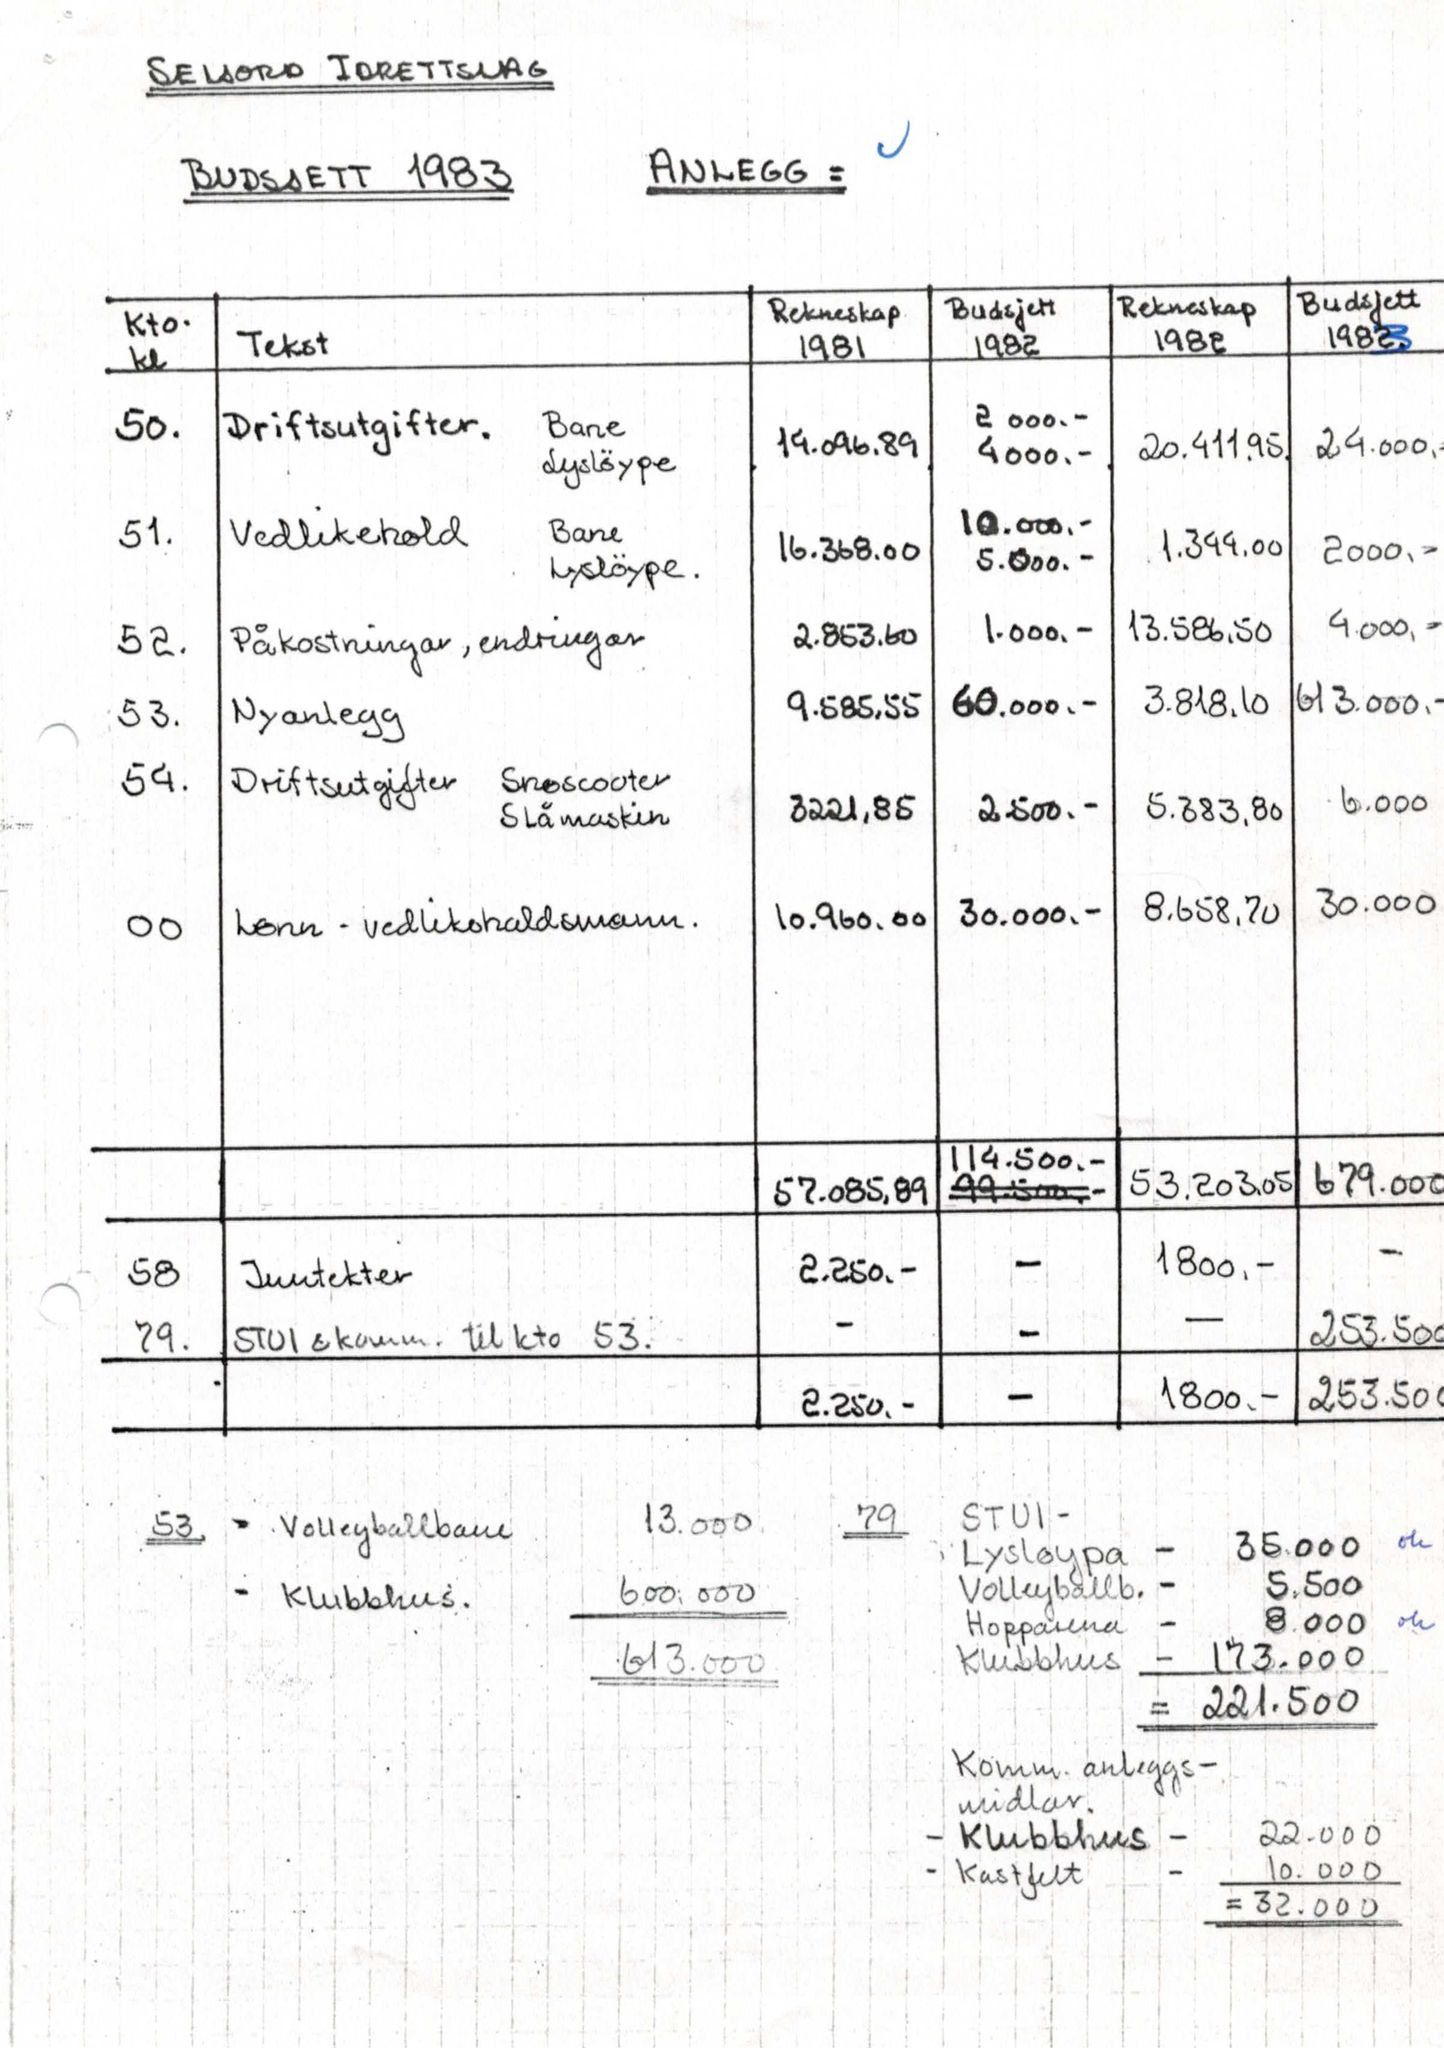 SELJORD IDRETTSLAG
BUDSJETT 1983 ANLEGG =
Kto. kl Tekst Rekneskap 1981 Budsjett 1982 Rekneskap 1982 Budsjett 1983
50. Driftsutgifter. Bane 2 000.-
Lysløype 14.096.89 4000.- 20.411.95 24.000,-
51. Vedlikehold Bane 10.000.-
Lysløype. 16.368.00 5.000.- 1.344.00 2000.-
52. Påkostningar, endringar 2.853.60 1.000.- 13.586,50 4.000,-
53. Nyanlegg 9.585,55 60.000.- 3.818,10 613.000,-
54. Driftsutgifter Snøscooter
Slåmaskin 3221,85 2.500.- 5.383,80 6.000
00 Lønn - vedlikehaldsmann. 10.960.00 30.000.- 8.658,70 30.000
114.500.-
57.085,89 99.500.- 53.203,05 679.000
58 Inntekter 2.250.- - 1800,- -
79. STUI & komm. til kto 53. - - - 253.500
2.250.- - 1800.- 253.500
53. - Volleyballbane 13.000
- Klubbhus. 600.000
613.000
79 STUI -
Lysløypa - 35.000 ok
Volleyballb. - 5.500
Hopparena - 8.000 ok
Klubbhus - 173.000
= 221.500
Komm. anleggs-
midlar.
- Klubbhus - 22.000
- Kastfelt - 10.000
= 32.000